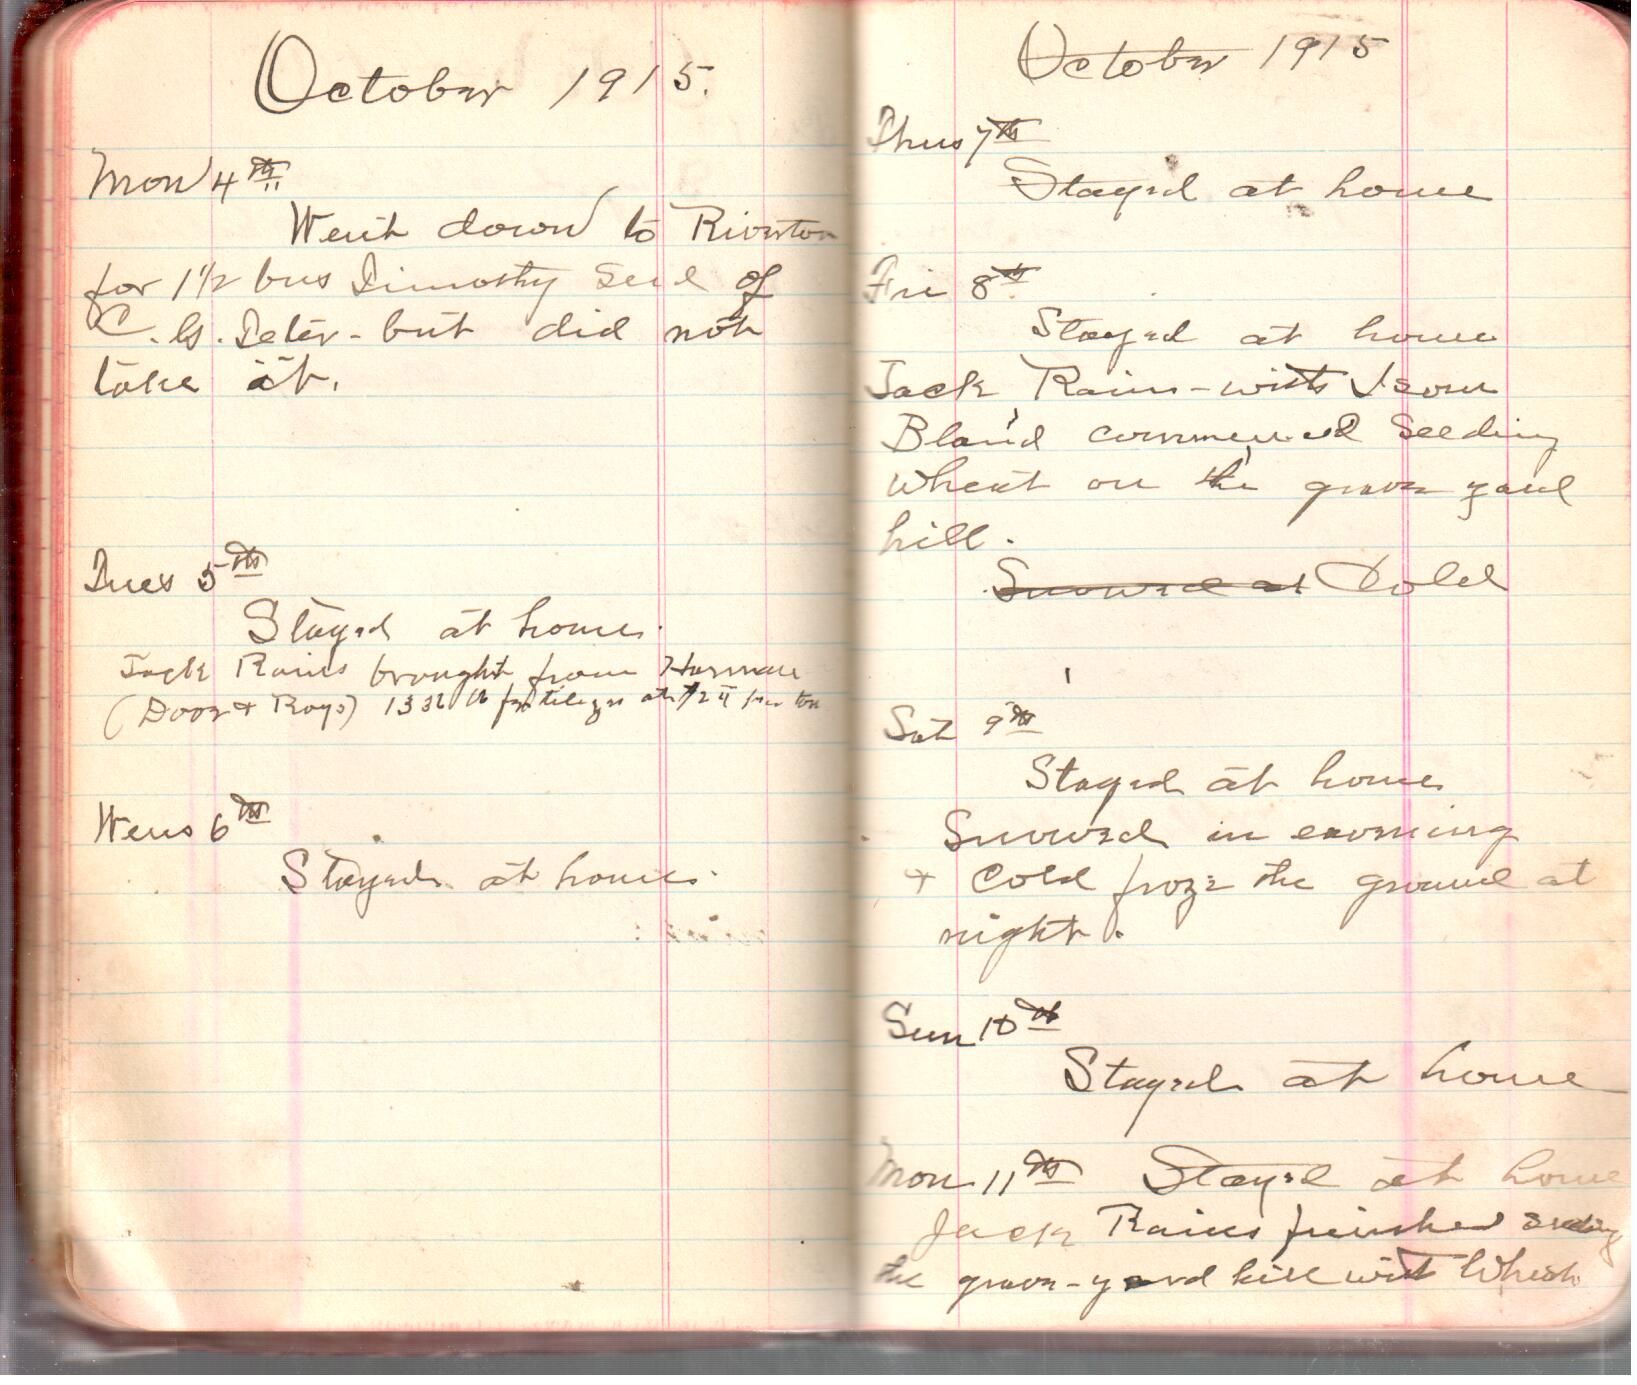 October 1915.
Mon 4th
Went down to Riverton
for 1 1/2 bus Timothy Seed of
C. G. Teter - but did not
take it.
Tues 5th
Stayed at home.
Jack Rains brought from Harman
at $24 per ton
Wens 6th
Stayed at home.
October 1915
Thus 7th
Stayed at home
Fri 8th
Stayed at home
Jack Rains - with
Bland commenced Seeding
Wheat on the grave yard
hill.
Snowed at Cold
Sat 9th
Stayed at home
Snowed in evorning
+ Cold froze the ground at
night.
Sun 10th
Stayed at home
Mon 11th Stayed at home
Jack Rains finished Seeding
the grave-yard hill with Wheat